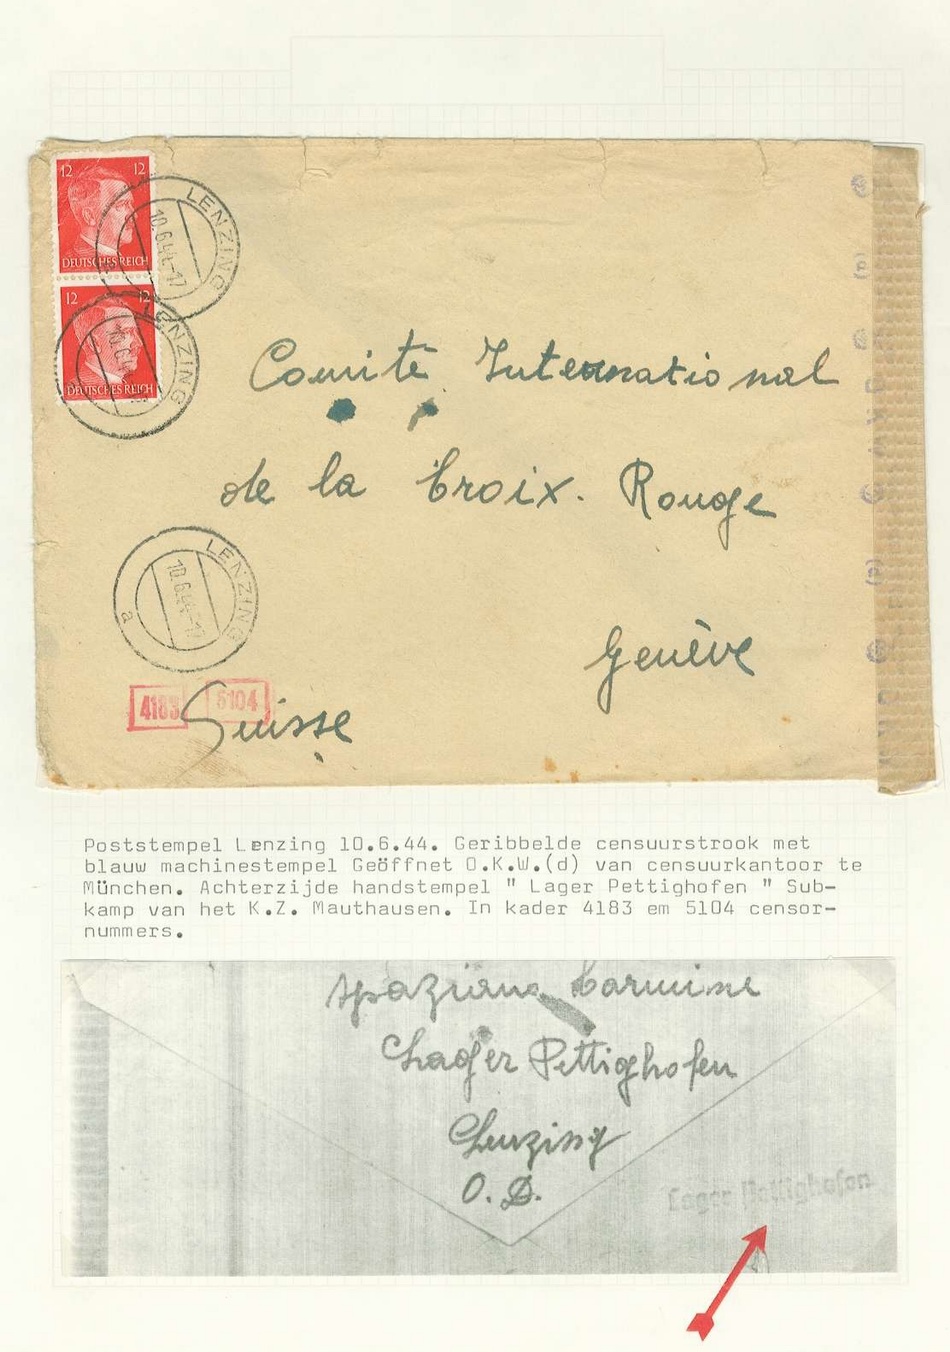 12 12
DEUTSCHES REICH
LENZING
10.6.44-17
12 12
DEUTSCHES REICH
LENZING
10.6.44
Comité International
de la Croix. Rouge
LENZING
10.6.44-17
a
Genève
4183 5104
Suisse
Poststempel Lenzing 10.6.44. Geribbelde censuurstrook met
blauw machinestempel Geöffnet O.K.W.(d) van censuurkantoor te
München. Achterzijde handstempel " Lager Pettighofen " Sub-
kamp van het K.Z. Mauthausen. In kader 4183 em 5104 censor-
nummers.
Spaziano Carmine
Lager Pettighofen
Lenzing
O. D.
Lager Pettighofen